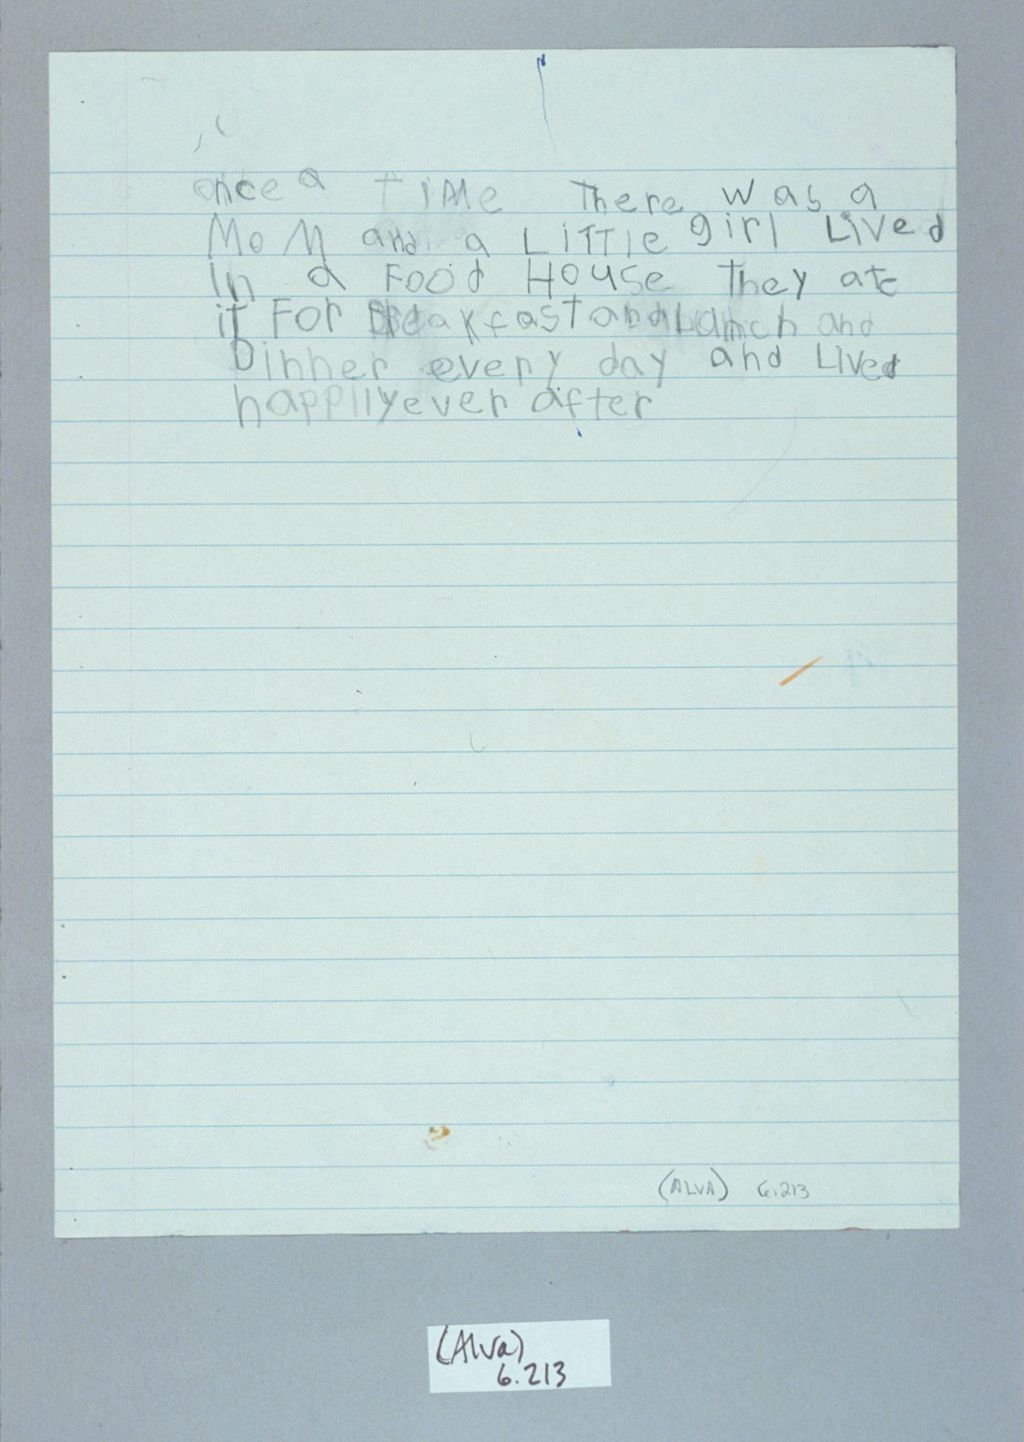 once a time There was a
MoM and a LiTTle girl Lived
In a FOOd House They ate
it For BReakfast and lunch and
Dinner every day and Lived
happily ever after
(ALVA) 6.213
(Alva)
6.213